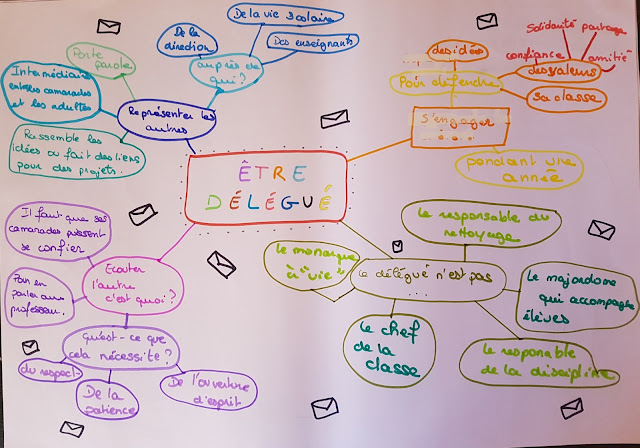 ÊTRE
DÉLÉGUÉ
Représenter les
autres
Porte
parole
Intermédiaire
entre les camarades
et les adultes
Rassemble les
idées ou fait des liens
pour des projets.
auprès de
qui ?
De la
direction
De la vie scolaire
Des enseignants
S'engager
Pour défendre
des idées
des valeurs
Solidarité
partage
confiance
amitié
sa classe
pendant une
année
Ecouter
l'autre
c'est quoi ?
Il faut que ses
camarades puissent
se confier
professeur.
Qu'est-ce que
cela nécessite ?
du respect
De la
patience
De l'ouverture
d'esprit
le délégué n'est pas
le monarque
à "vie"
le responsable du
nettoyage
le majordome
qui accompagne
élèves
le responable
de la discipline
le chef
de la
classe